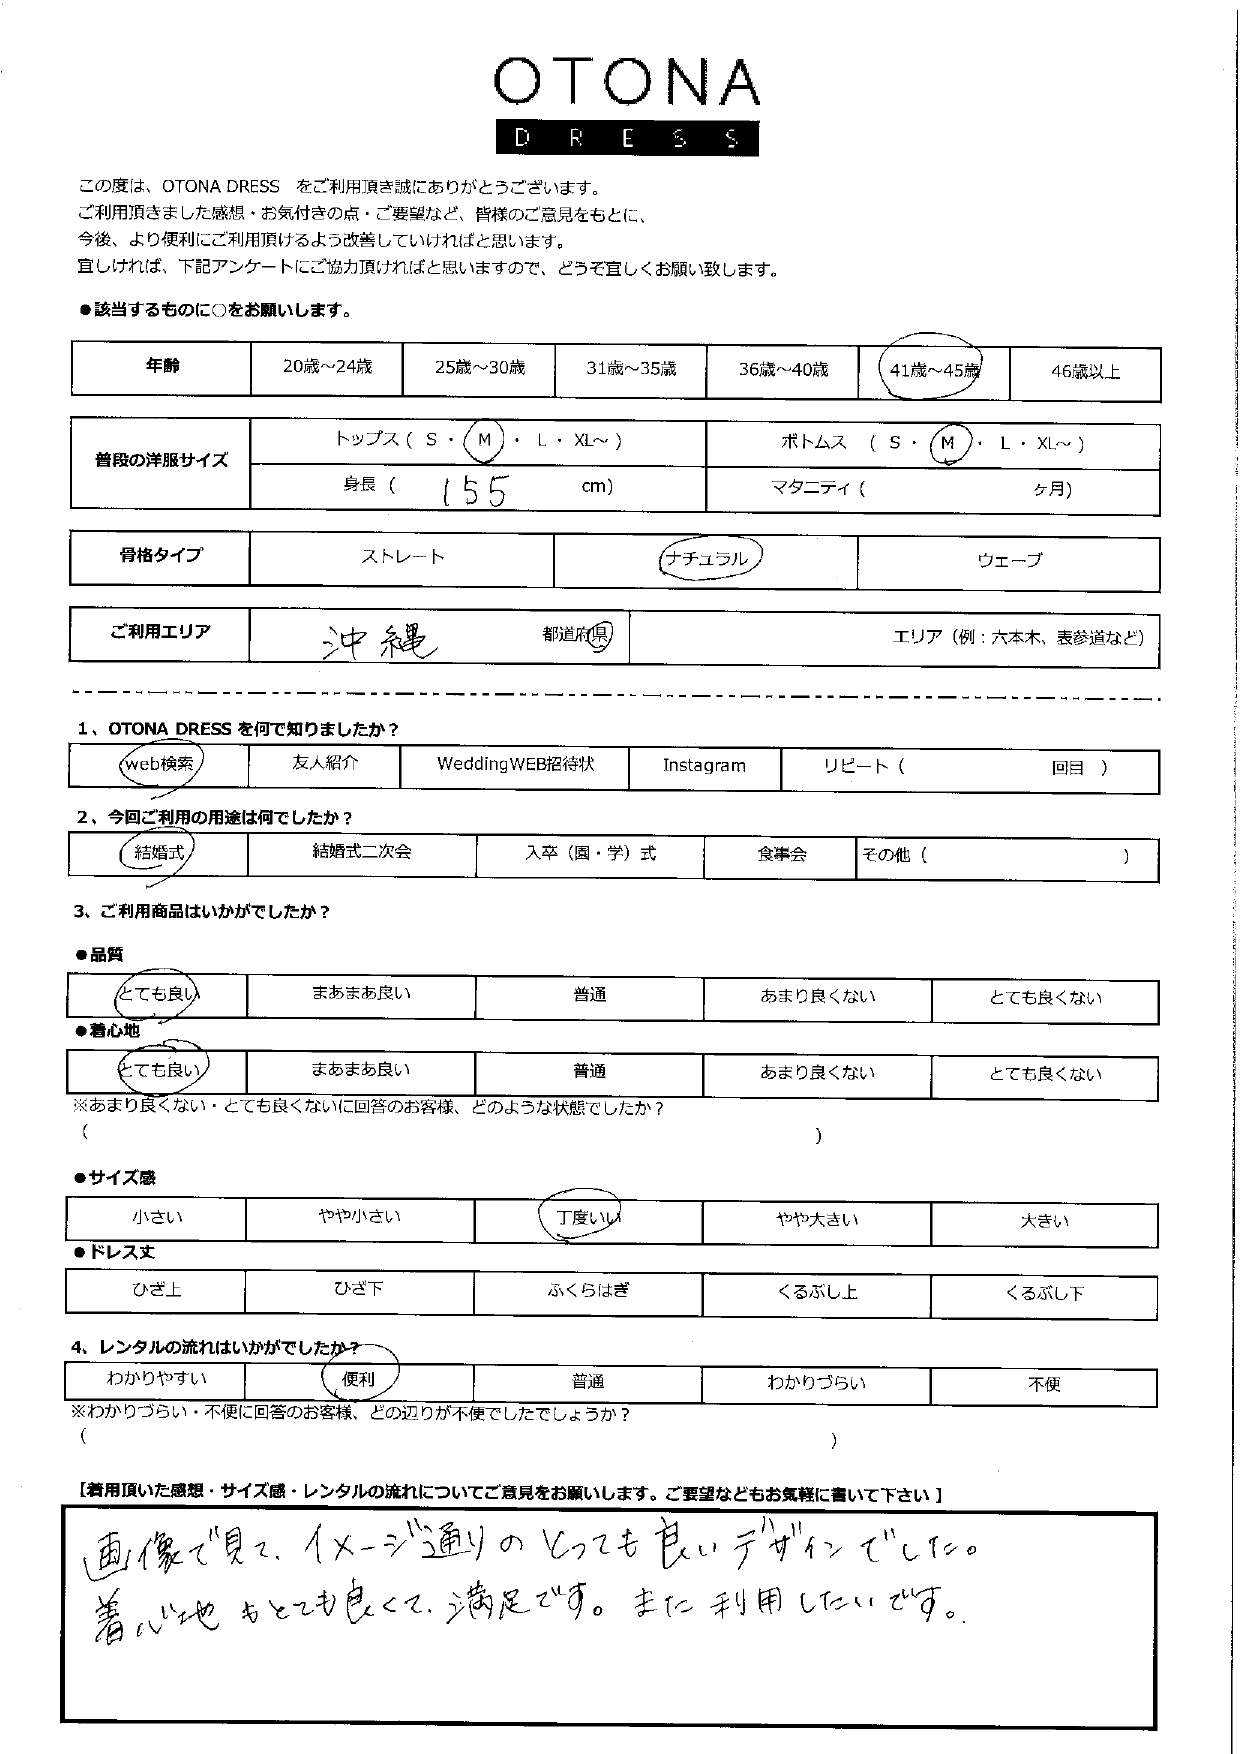 OTONA
DRESS
この度は、OTONA DRESS をご利用頂き誠にありがとうございます。
ご利用頂きました感想・お気付きの点・ご要望など、皆様のご意見をもとに、
今後、より便利にご利用頂けるよう改善していければと思います。
宜しければ、下記アンケートにご協力頂ければと思いますので、どうぞ宜しくお願い致します。
●該当するものに○をお願いします。
年齢 20歳～24歳 25歳～30歳 31歳～35歳 36歳～40歳 41歳～45歳 46歳以上
普段の洋服サイズ トップス ( S ・ M ・ L ・ XL～ ) ボトムス ( S ・ M ・ L ・ XL～ )
身長 ( 155 cm) マタニティ ( ヶ月)
骨格タイプ ストレート ナチュラル ウェーブ
ご利用エリア 沖縄 都道府県 エリア（例：六本木、表参道など）
1、OTONA DRESS を何で知りましたか？
web検索 友人紹介 WeddingWEB招待状 Instagram リピート ( 回目 )
2、今回ご利用の用途は何でしたか？
結婚式 結婚式二次会 入卒（園・学）式 食事会 その他 ( )
3、ご利用商品はいかがでしたか？
●品質
とても良い まあまあ良い 普通 あまり良くない とても良くない
●着心地
とても良い まあまあ良い 普通 あまり良くない とても良くない
※あまり良くない・とても良くないに回答のお客様、どのような状態でしたか？
( )
●サイズ感
小さい やや小さい 丁度いい やや大きい 大きい
●ドレス丈
ひざ上 ひざ下 ふくらはぎ くるぶし上 くるぶし下
4、レンタルの流れはいかがでしたか？
わかりやすい 便利 普通 わかりづらい 不便
※わかりづらい・不便に回答のお客様、どの辺りが不便でしたでしょうか？
( )
【着用頂いた感想・サイズ感・レンタルの流れについてご意見をお願いします。ご要望などもお気軽に書いて下さい】
画像で見て、イメージ通りのとっても良いデザインでした。
着心地もとても良くて、満足です。また利用したいです。